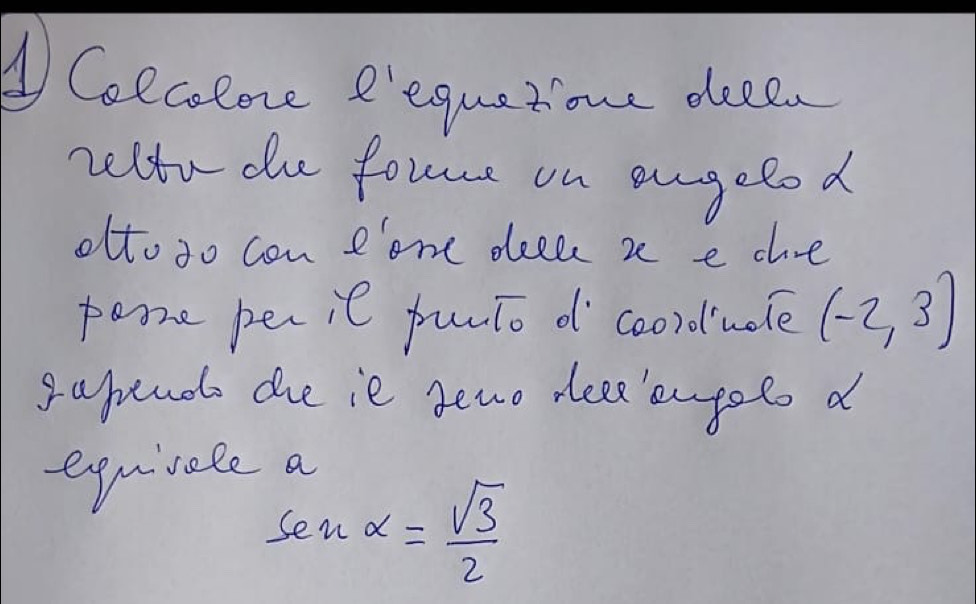 1) Calcolare l'equazione della
retta che forma un angolo α
ottuso con l'asse delle x e che
passa per il punto di coordinate (-2, 3)
sapendo che il seno dell'angolo α
equivale a
sen α = √3/2